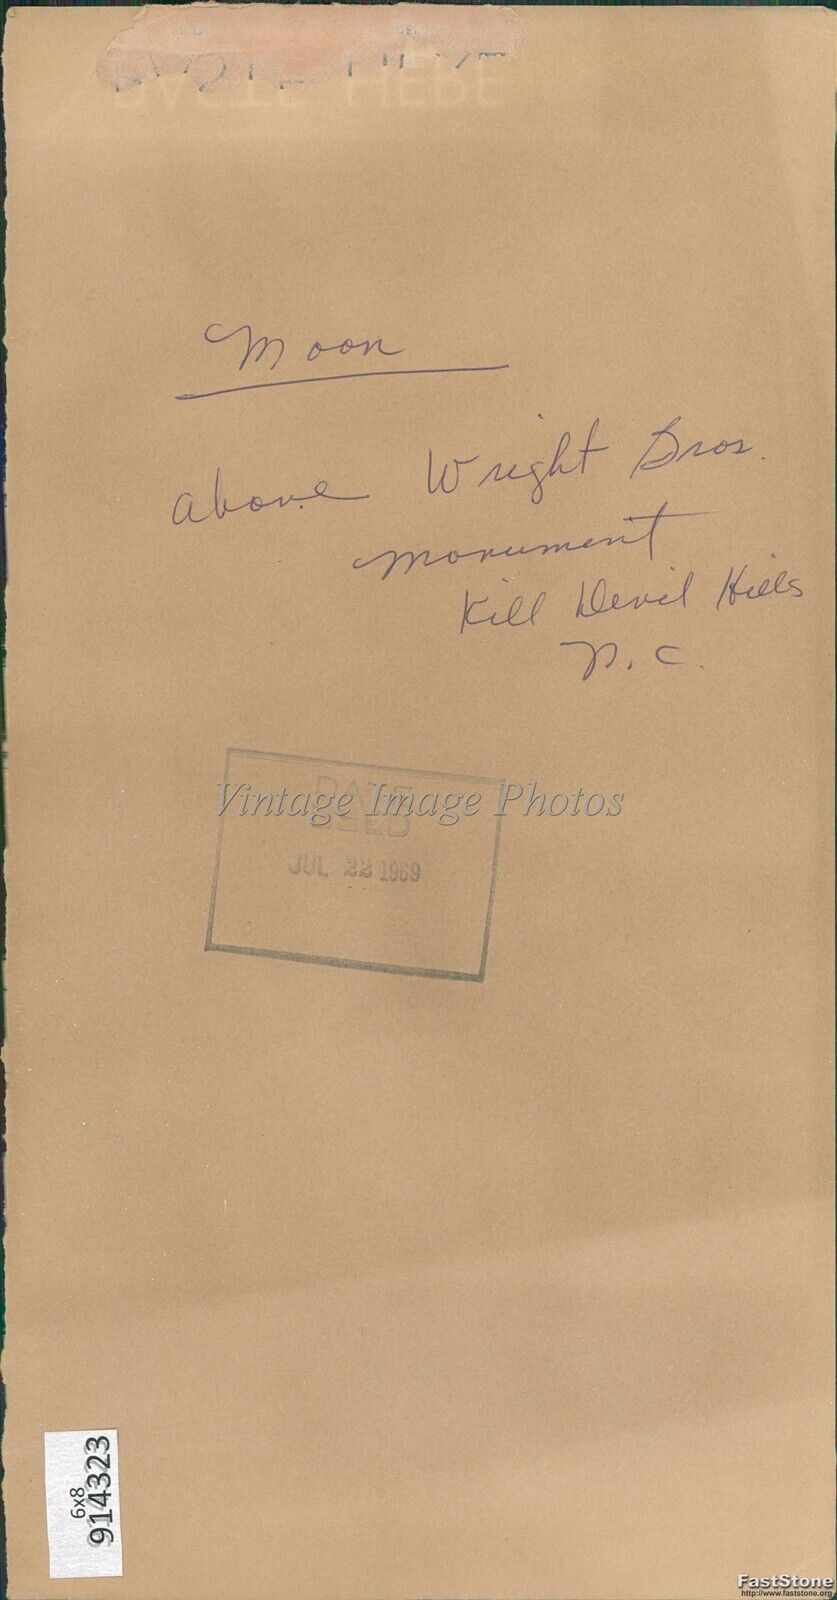 PASTE HERE
Moon
above Wright Bros.
monument
Kill Devil Hills
N.C.
DATE
USED
JUL 22 1969
Vintage Image Photos
6x8
914323
FastStone
http://www.faststone.org